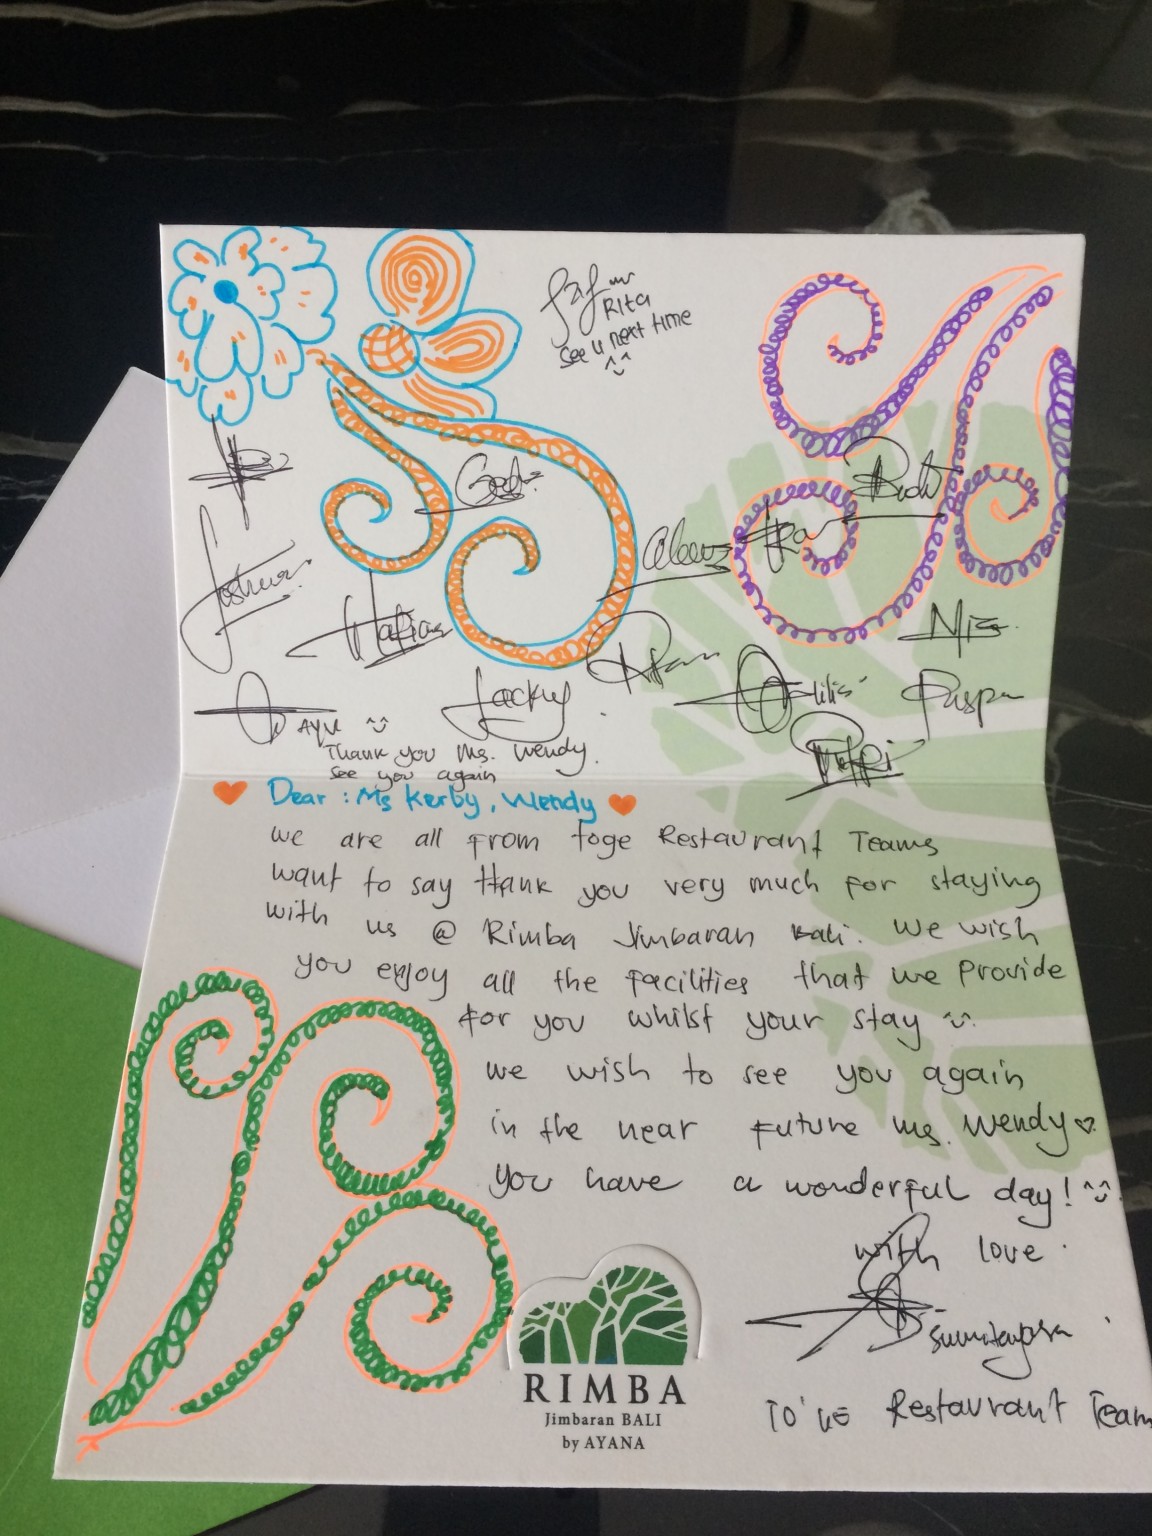 Rita
see u next time
Joshua
Jacky
Puspa
Ayu
Thank you Ms. Wendy.
see you again
Dear : Ms Kerby, Wendy
we are all from toge Restaurant Teams
want to say thank you very much for staying
with us @ Rimba Jimbaran Bali. We wish
you enjoy all the facilities that we provide
for you whilst your stay
we wish to see you again
in the near future Ms. Wendy
you have a wonderful day!
with love
To'ge Restaurant Team
RIMBA
Jimbaran BALI
by AYANA